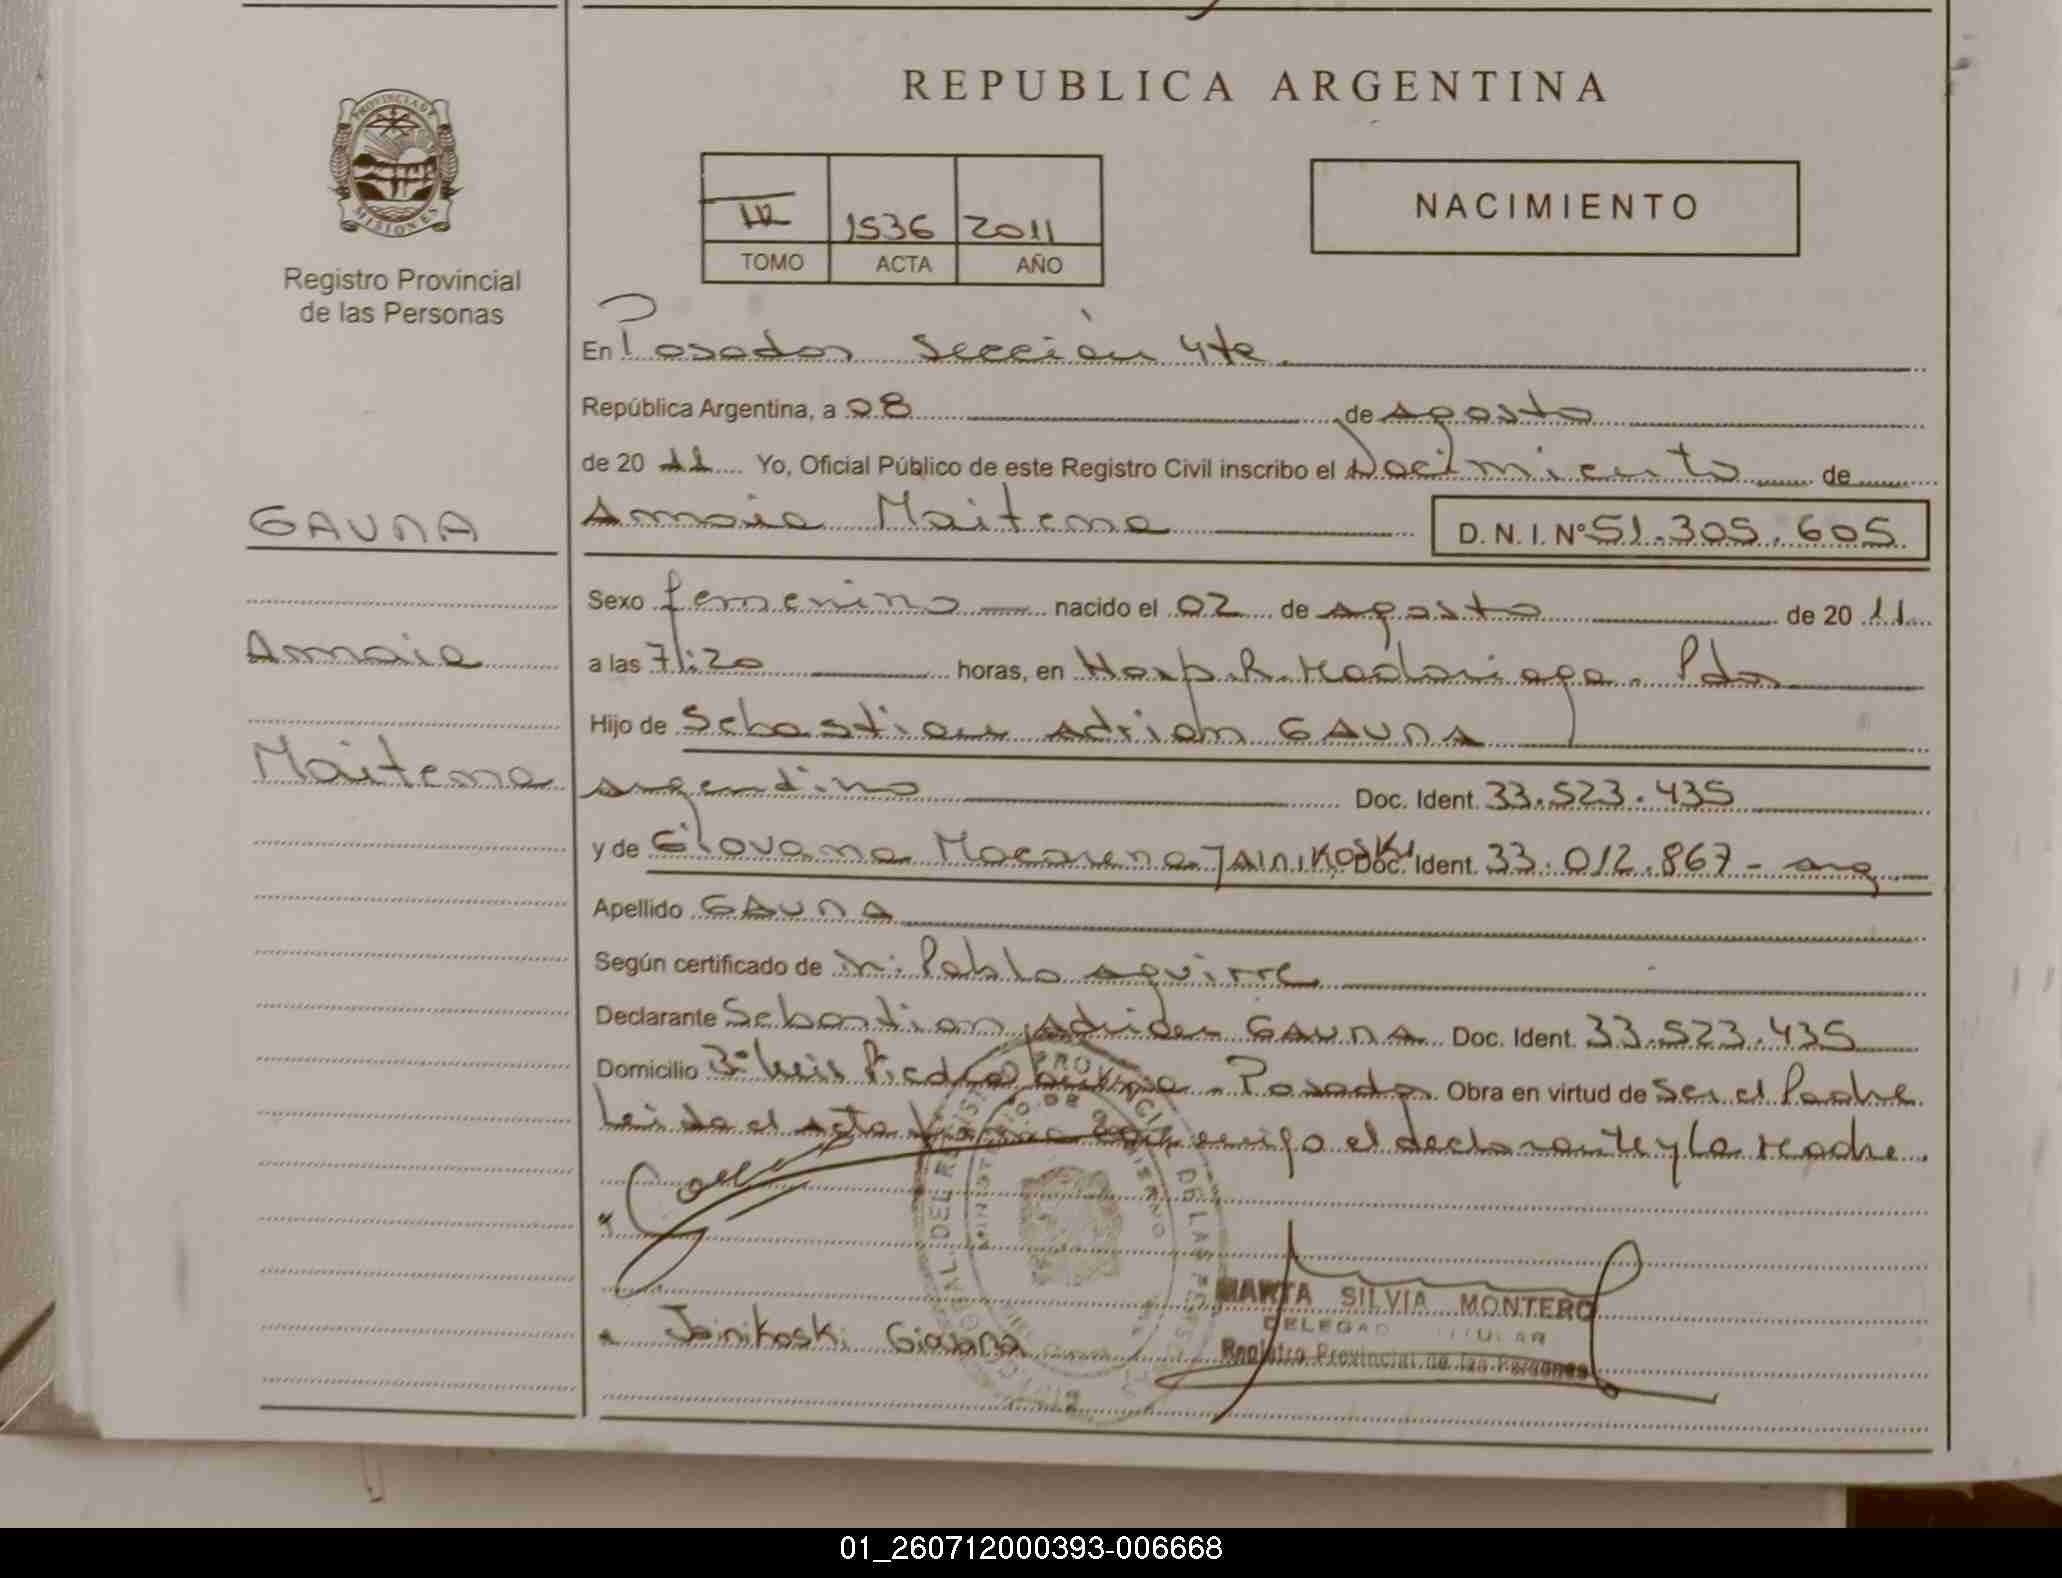 REPUBLICA ARGENTINA
PROVINCIA DE
MISIONES
Registro Provincial
de las Personas
1536 2011
TOMO ACTA AÑO
NACIMIENTO
En Posadas Sección 4ta.
República Argentina, a 08 de agosto
de 20 11 Yo, Oficial Público de este Registro Civil inscribo el Nacimiento de
GAUNA
Amaia Maitena D. N. I. Nº 51.305.605
Sexo femenino nacido el 02 de agosto de 20 11
Amaia
a las 7:20 horas, en Hosp. R. Madariaga. Pdas
Hijo de Sebastian Adrian GAUNA
Maitena
argentino Doc. Ident. 33.523.435
y de Giovana Macarena JAINIKOSKI Doc. Ident. 33.012.867 - arg
Apellido GAUNA
Según certificado de Pablo Aguirre
Declarante Sebastian Adrian GAUNA Doc. Ident. 33.523.435
Domicilio Bº Luis Piedra buena - Posadas Obra en virtud de ser el Padre
Leida el acta firman conmigo el declarante y la Madre.
MARTA SILVIA MONTERO
DELEGADA TITULAR
Jainikoski Giovana
Registro Provincial de las Personas
01_260712000393-006668